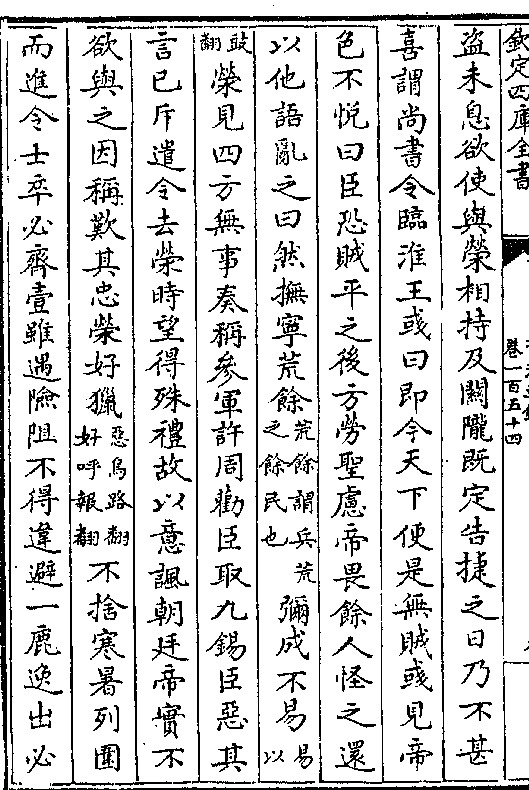 欽定四庫全書
卷一百五十四
盗未息欲使與榮相持及關隴既定告捷之日乃不甚
喜謂尚書令臨淮王彧曰即今天下便是無賊彧見帝
色不悦曰臣恐賊平之後方勞聖慮帝畏餘人怪之還
以他語亂之曰然撫寧荒餘荒餘謂兵荒之餘民也彌成不易易以
豉翻榮見四方無事奏稱參軍許周勸臣取九錫臣惡其
言已斥遣令去榮時望得殊禮故以意諷朝廷帝實不
欲與之因稱歎其忠榮好獵惡烏路翻好呼報翻不捨寒暑列圍
而進令士卒必齊壹雖遇險阻不得違避一鹿逸出必